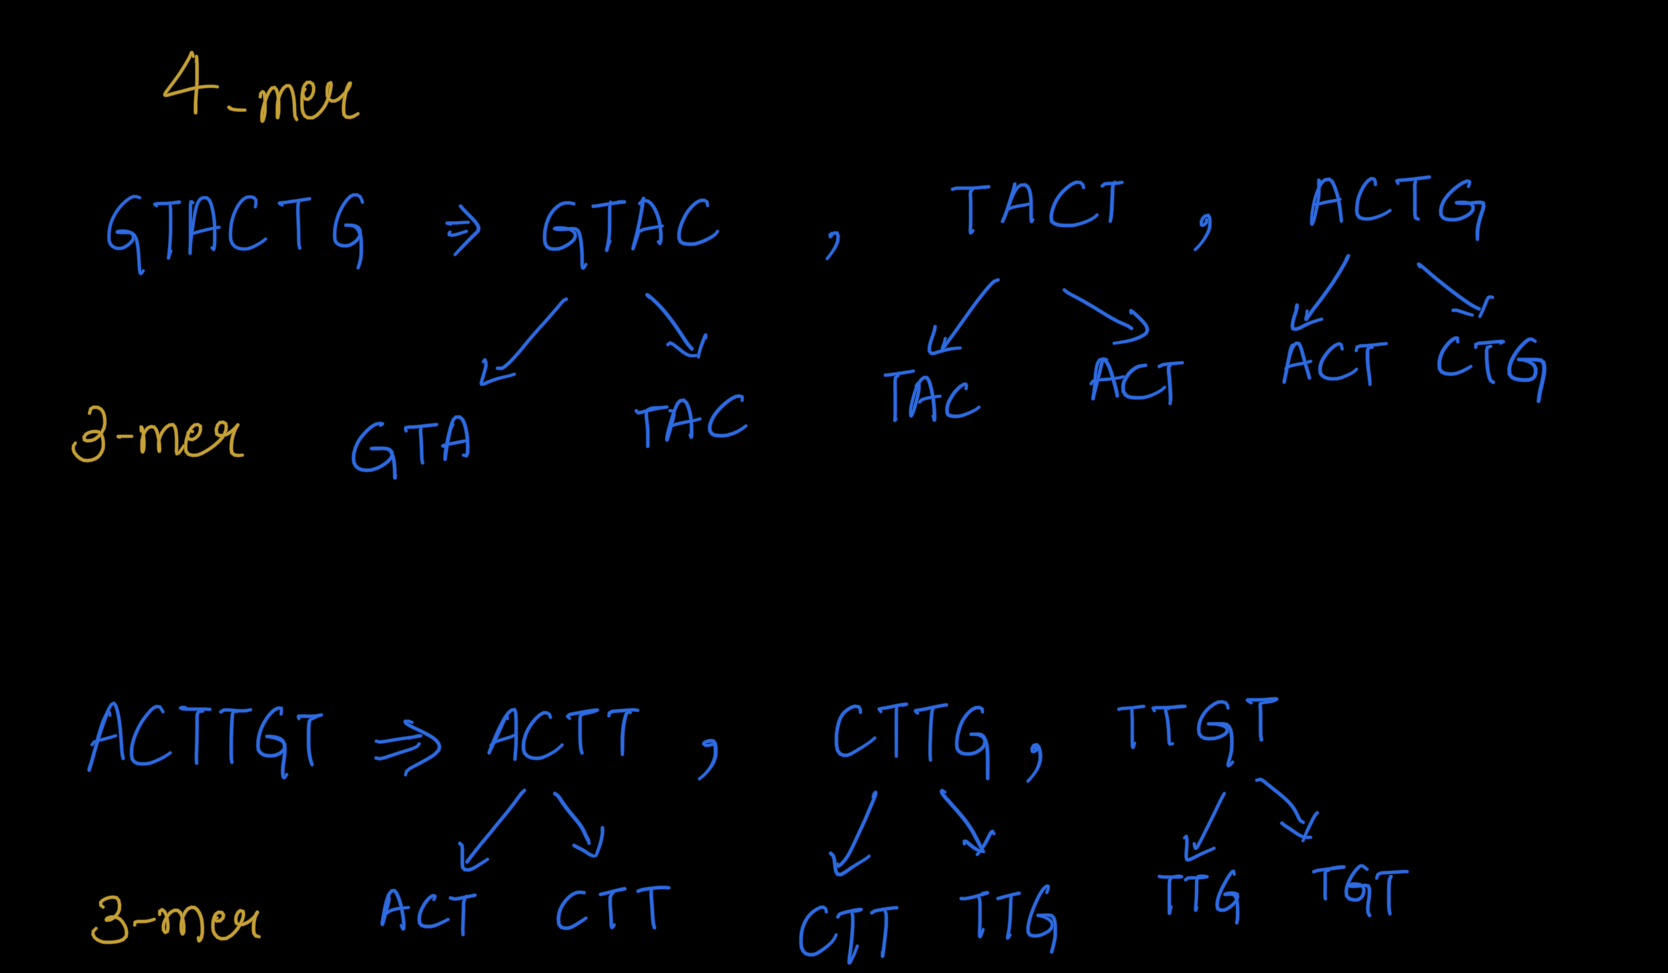 4-mer
GTACTG ⇒ GTAC , TACT , ACTG
3-mer GTA TAC TAC ACT ACT CTG
ACTTGT ⇒ ACTT , CTTG , TTGT
3-mer ACT CTT CTT TTG TTG TGT